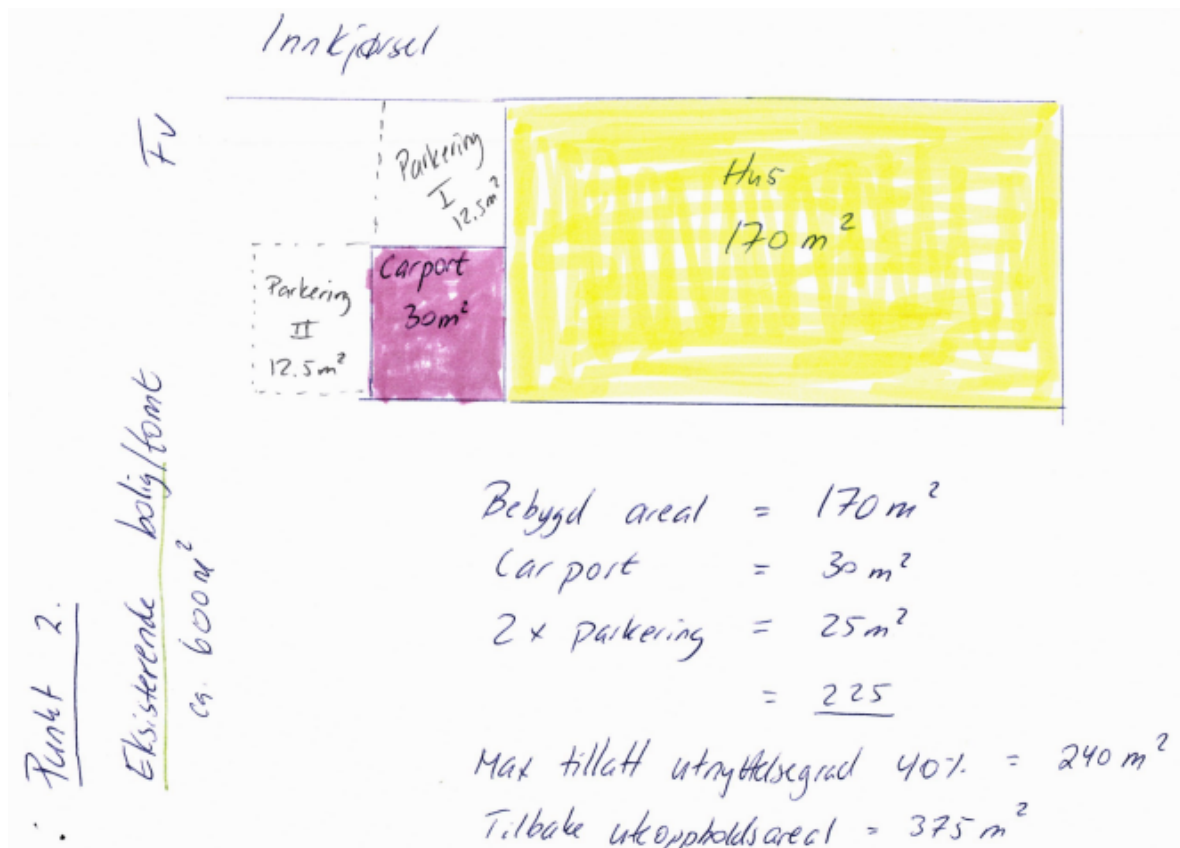 Innkjørsel
Fv
Parkering
I
12.5m²
Hus
170 m²
Carport
30m²
Parkering
II
12.5m²
Punkt 2.
Eksisterende bolig/tomt
ca. 600m²
Bebygd areal = 170 m²
Carport = 30 m²
2 x parkering = 25m²
= 225
Max tillatt utnyttelsegrad 40% = 240 m²
Tilbake uteoppholdsareal = 375 m²